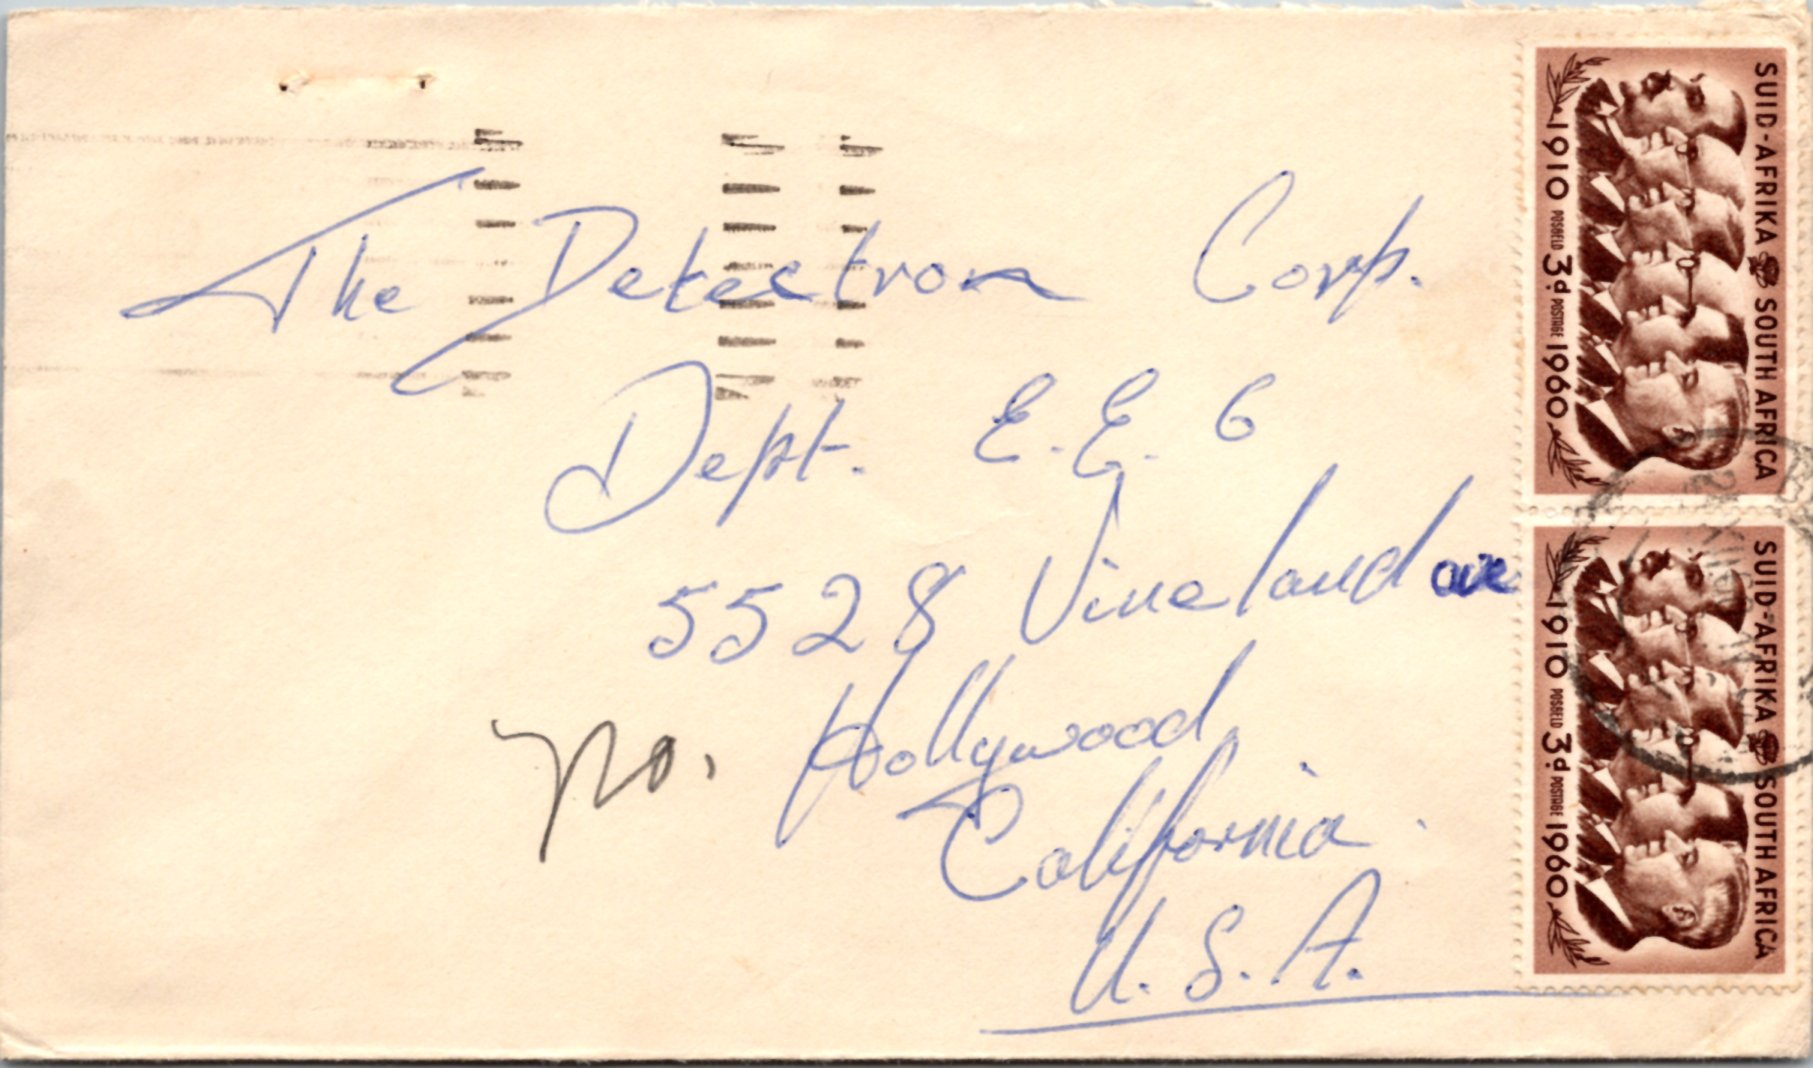 The Detectron Corp.
Dept. E.E. 6
5528 Vineland ave
No. Hollywood,
California.
U.S.A.
SUID-AFRIKA SOUTH AFRICA
1910 POSGELD 3d POSTAGE 1960
SUID-AFRIKA SOUTH AFRICA
1910 POSGELD 3d POSTAGE 1960